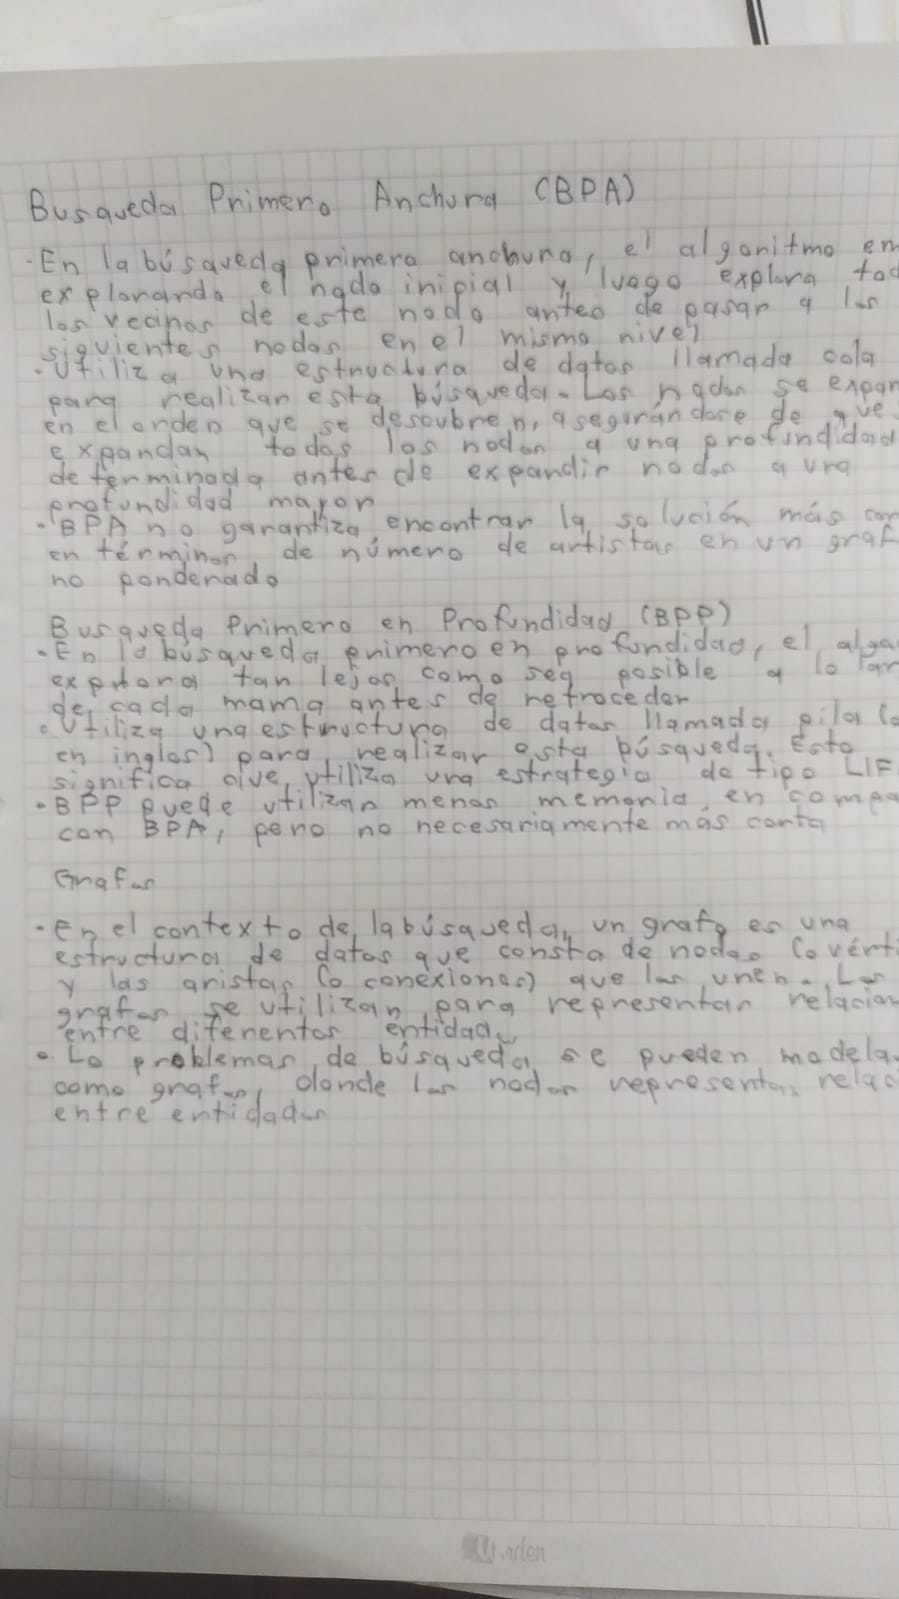 Busqueda Primero Anchura (BPA)
- En la búsqueda primero anchura, el algoritmo em
explorando el nodo inicial y luego explora tod
los vecinos de este nodo antes de pasar a los
siguientes nodos en el mismo nivel
- Utiliza una estructura de datos llamada cola
para realizar esta búsqueda. Los nodos se expan
en el orden que se descubren, asegurándose de que
expandan todos los nodos a una profundidad
determinada antes de expandir nodos a una
profundidad mayor
- BPA no garantiza encontrar la solución más cor
en términos de número de artistas en un graf
no ponderado
Busqueda Primero en Profundidad (BPP)
- En la búsqueda primero en profundidad, el algo
explora tan lejos como sea posible a lo lar
de cada mama antes de retroceder
- Utiliza una estructura de datos llamada pila (o
en inglas) para realizar esta búsqueda. Esto
significa que utiliza una estrategia de tipo LIF
- BPP puede utilizar menos memoria en compa
con BPA, pero no necesariamente más corta
Grafos
- En el contexto de la búsqueda, un grafo es una
estructura de datos que consta de nodos (o vért
y las aristas (o conexiones) que las unen. Los
grafos se utilizan para representar relacion
entre diferentes entidad
- Lo problemas de búsqueda se pueden modela
como grafos, donde los nodos representan relac
entre entidades